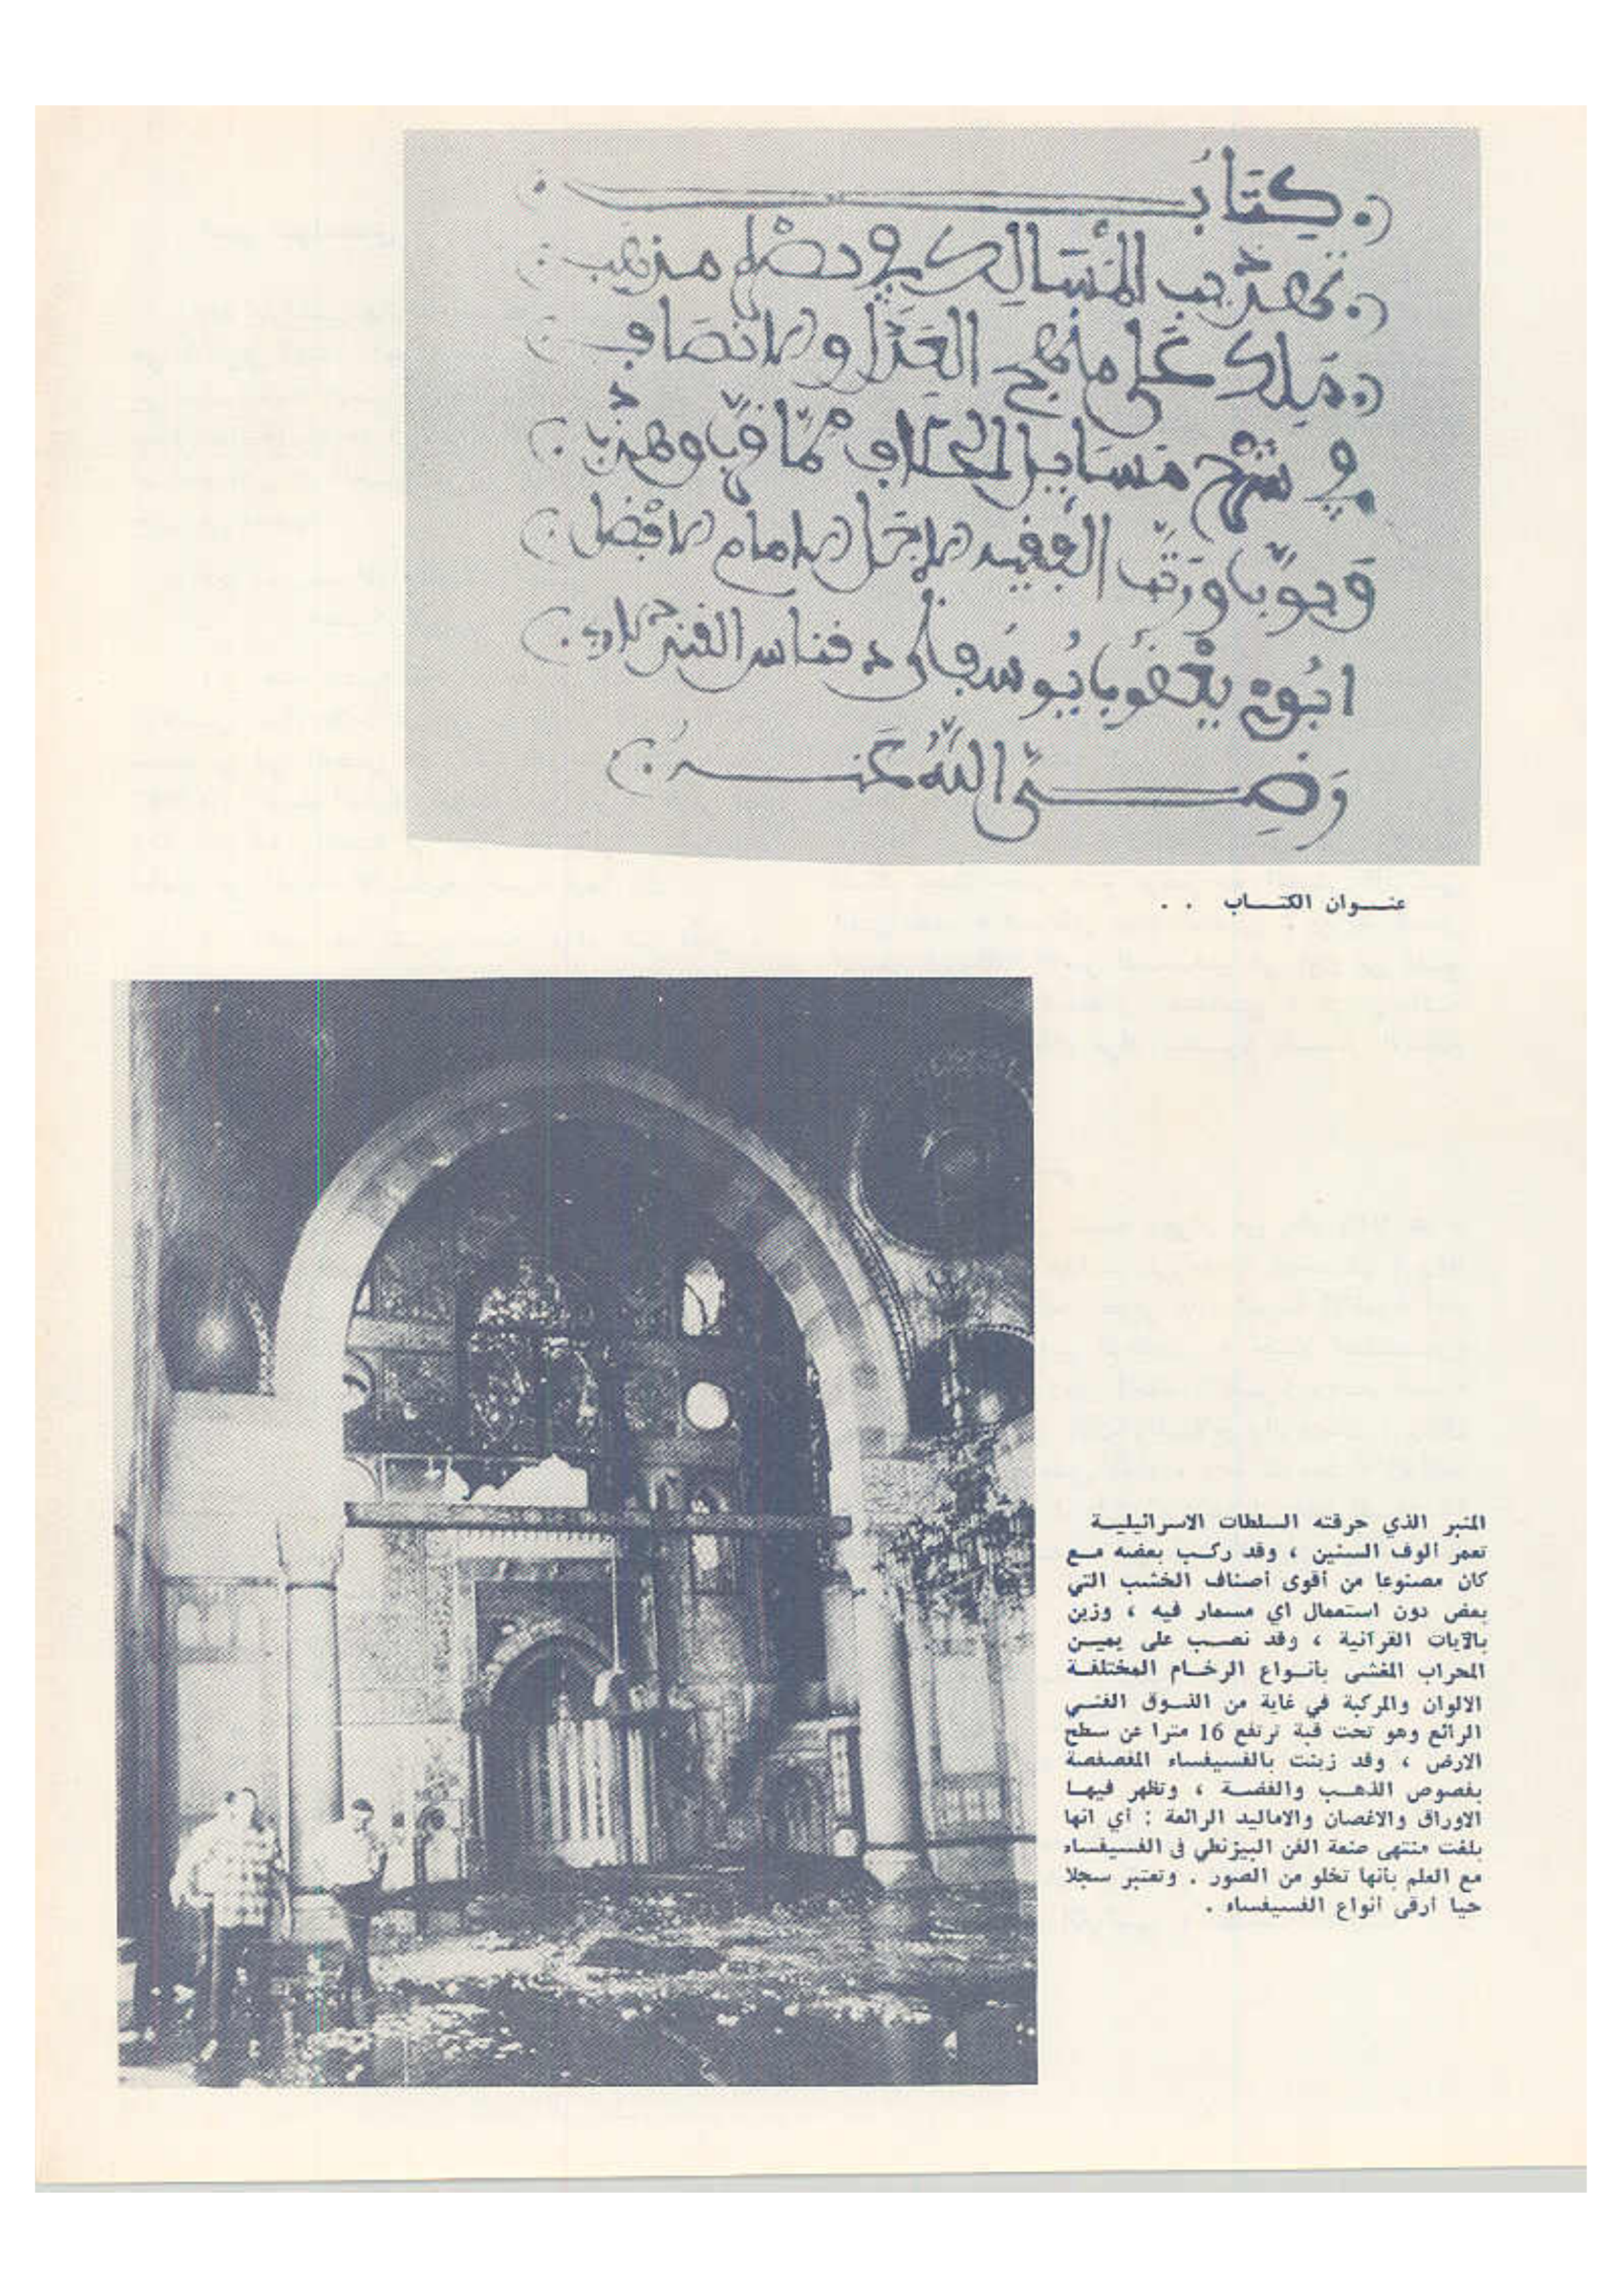 كتاب
تهذيب المسالك في نصرة مذهب
مالك على منهج العدل والانصاف
في شرح مسايل الخلاف مما ... وهذب
وبوب ورتب الفقيه الاجل الامام الافضل
يوسف بن دوناس الفندلاوي
رضي الله عنه
عنـــوان الكتـــاب . .
المنبر الذي حرقته السلطات الاسرائيليـة
تعمر ألوف السنين ، وقد ركـب بعضه مـع
كان مصنوعا من أقوى أصناف الخشب التي
بعض دون استعمال اي مسمار فيه ، وزين
بالآيات القرآنية ، وقد نصـب على يميـن
المحراب المغشى بأنـواع الرخـام المختلفـة
الالوان والمركبة في غاية من الذـوق الفنـي
الرائع وهو تحت قبة ترتفع 16 مترا عن سطح
الارض ، وقد زينت بالفسيفساء المفصصة
بفصوص الذهـب والفضـة ، وتظهر فيهـا
الاوراق والاغصان والاماليد الرائعة : أي انها
بلغت منتهى صنعة الفن البيزنطي في الفسيفساء
مع العلم بأنها تخلو من الصور . وتعتبر سجلا
حيا أرقى أنواع الفسيفساء .